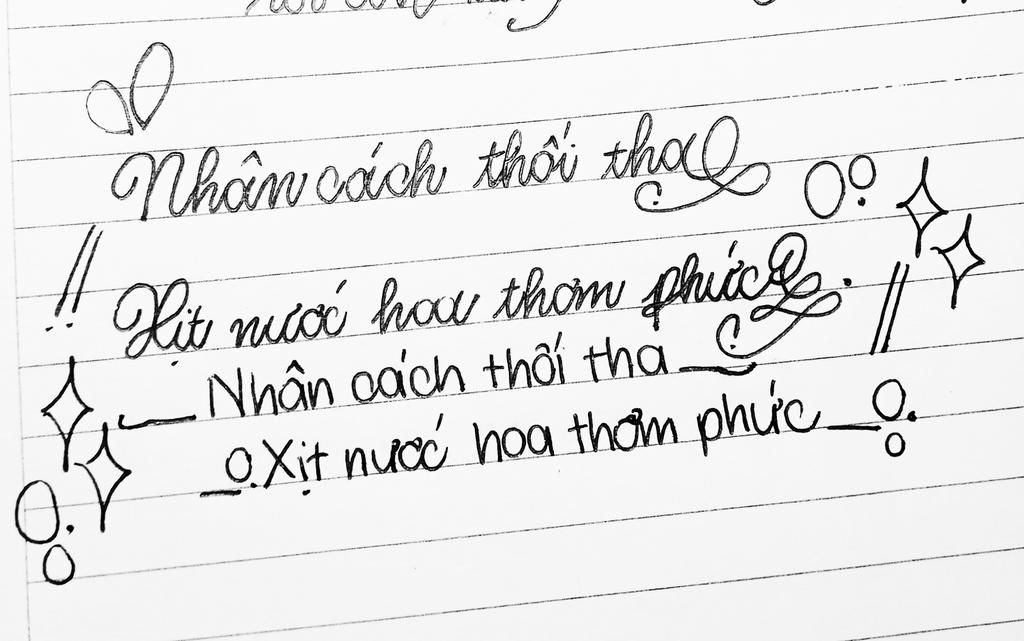 Nhân cách thối tha
Xịt nước hoa thơm phức.
Nhân cách thối tha
Xịt nước hoa thơm phức